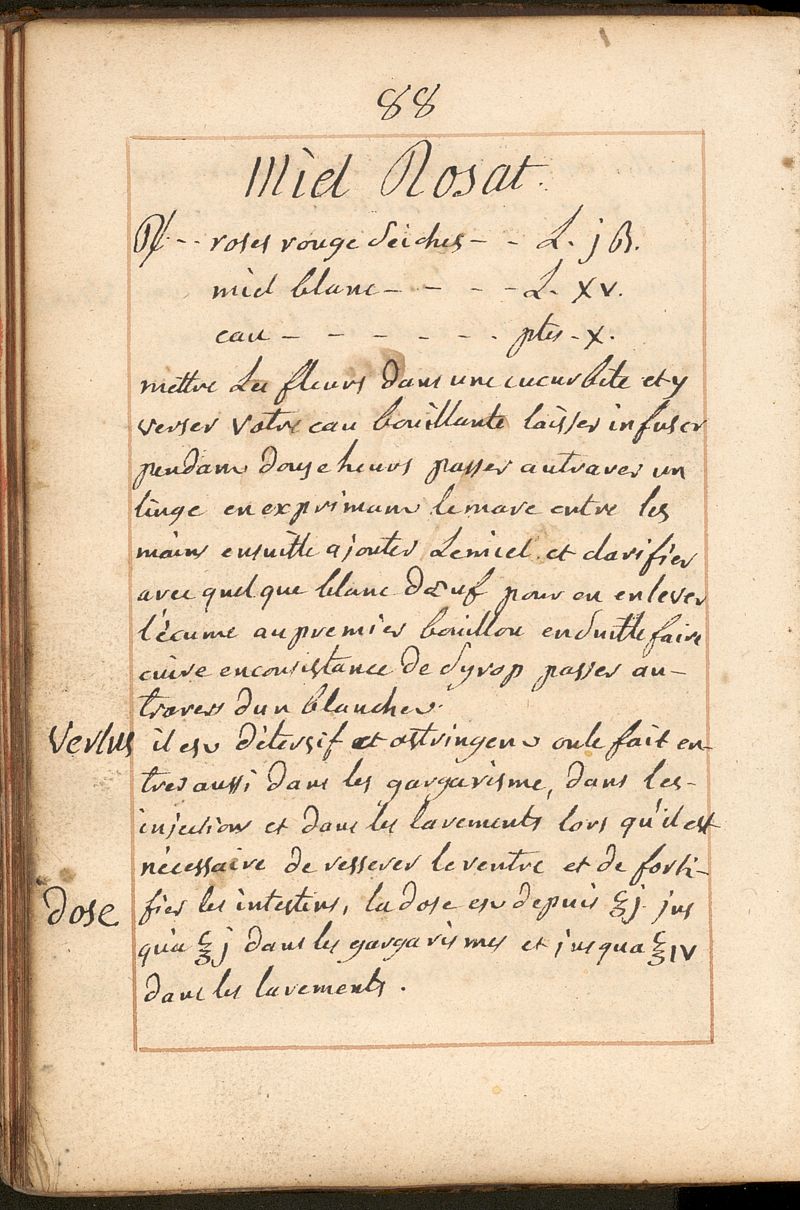 88
Miel Rosat.
℞ - - roses rouge séiches - - L. j ß.
miel blanc - - - - L. xv.
eau - - - - - - ptes - x.
mettre Les fleurs dans une cucurbite et y
verser votre eau bouillante laisser infuser
pendant douse heurs passer autraver un
linge en exprimant le marc entre les
mains ensuitte ajouter Le miel et clarifier
avec quelque blanc dœuf pour en enlever
l'écume au premier bouillon ensuitte faire
cuire en consistance de syrop passer au-
travers dun blanchet.
Vertus il est détersif et astringent on le fait en-
trer aussi dans les gargarisme, dans les-
injection et dans les lavements lors qu'il est
nécessaire de resserer le ventre et de forti-
dose fier les intestins, la dose est depuis ℥j. jus
qu'a ℥j dans les gargarismes et jusqua ℥IV
dans les lavements.